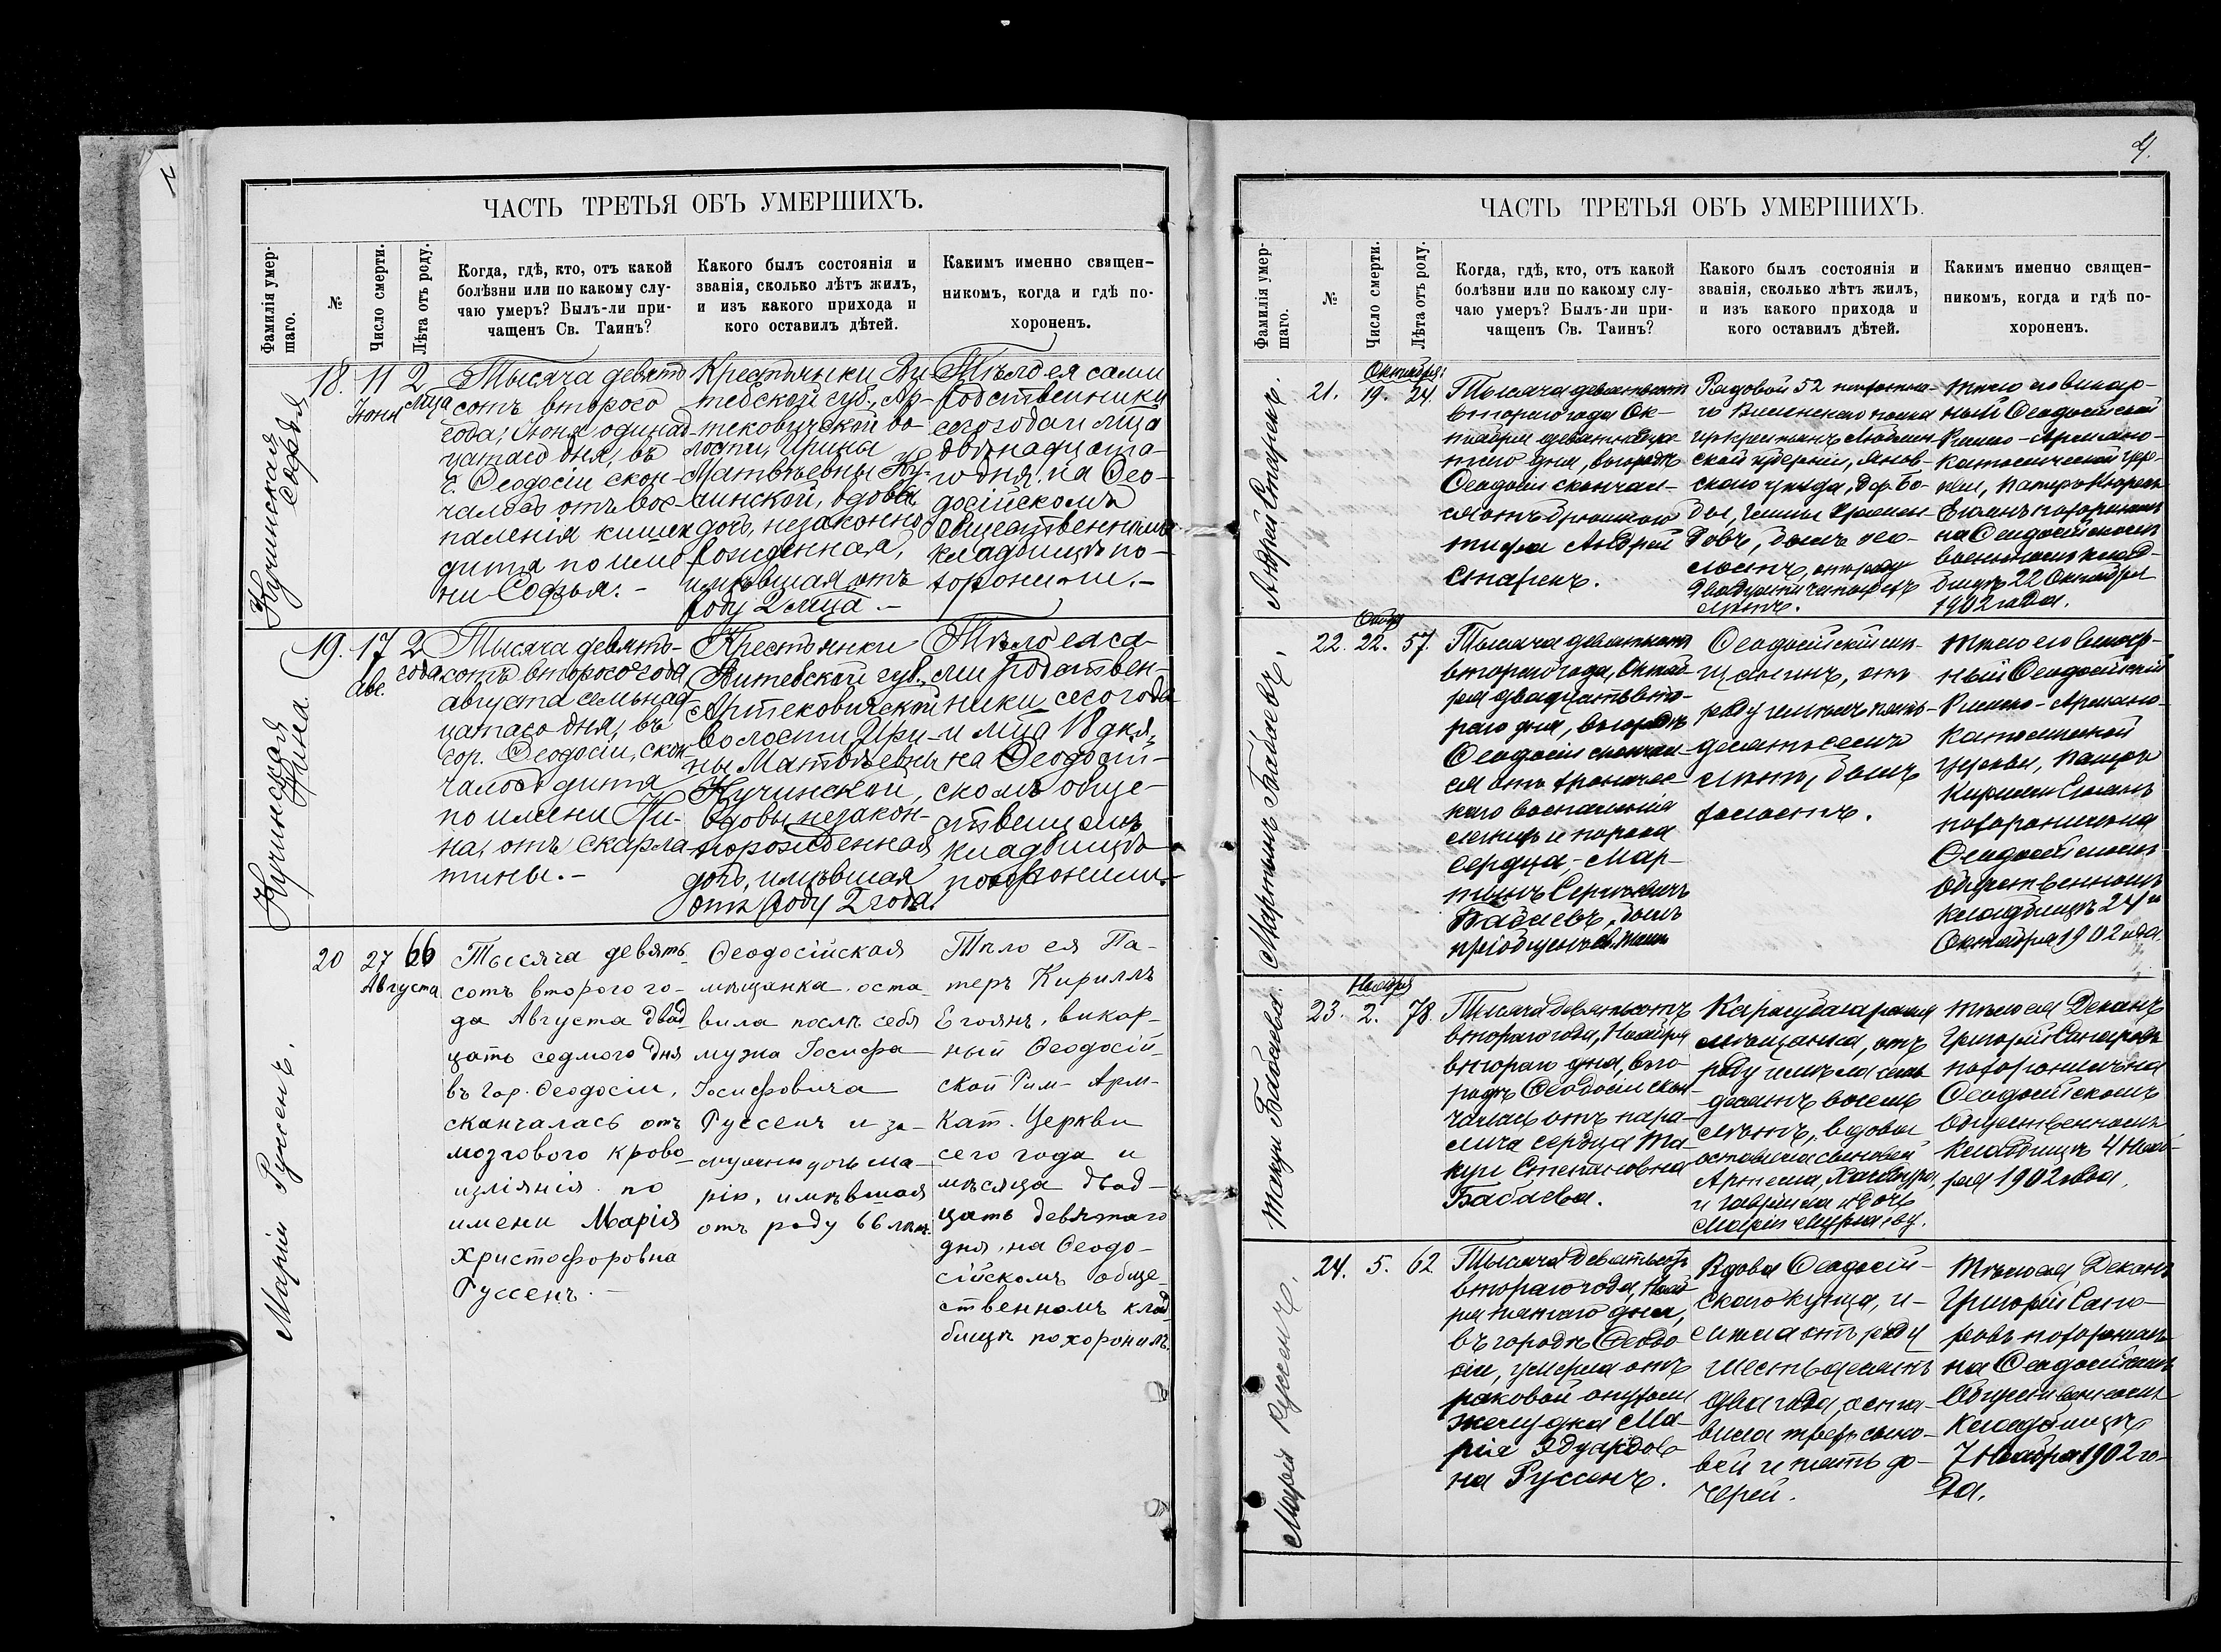 ЧАСТЬ ТРЕТЬЯ ОБЪ УМЕРШИХЪ.
Фамилія умер-
шаго.
№
Число смерти.
Лѣта отъ роду.
Когда, гдѣ, кто, отъ какой
болѣзни или по какому слу-
чаю умеръ? Былъ-ли при-
чащенъ Св. Таинъ?
Какого былъ состоянія и
званія, сколько лѣтъ жилъ,
и изъ какого прихода и
кого оставилъ дѣтей.
Какимъ именно священ-
никомъ, когда и гдѣ по-
хороненъ.
Кучинская
Софія
18.
11
Іюня
2
мѣца
Тысяча девять
сотъ второго
года, Іюня одинад
цатаго дня, въ
г. Ѳеодосіи скон-
чалась отъ вос-
паленія кишек
дитя по име
ни Софья. -
Крестьянки Ви
тебской губ., Ар-
тековичской во-
лости, Ирины
Матвѣевны Ку-
чинской, вдовы
дочь, незаконно
рожденная,
имѣвшая отъ
роду 2 мѣца. -
Тѣло ея сами
родственники
сего года и мѣца
двѣнадцата-
го дня, на Ѳео-
досійскомъ
общественномъ
кладбищѣ по-
хоронили. -
Кучинская
Нина
19.
17
Авг.
2
года
Тысяча девять-
сотъ второго года,
августа семьнад
цатаго дня, въ
гор. Ѳеодосіи, скон
чалось дитя
по имени Ни-
на, отъ скарла
тины. -
Крестьянки
Витебской губ.,
Артековичской
волости Ири-
ны Матвѣевны
Кучинской,
вдовы незакон-
норожденная
дочь, имѣвшая
отъ роду 2 года.
Тѣло ея са-
ми родствен-
ники сего года
и мѣца 18 дня,
на Ѳеодосій-
скомъ обще-
ственномъ
кладбищѣ
похоронили. -
Марія Руссенъ.
20
27
Августа
66
Тысяча девять-
сотъ второго го-
да Августа двад
цать седмого дня
въ гор. Ѳеодосіи,
скончалась отъ
мозгового крово-
изліянія по
имени Марія
Христофоровна
Руссенъ. -
Ѳеодосійская
мѣщанка. оста-
вила послѣ себя
мужа Іосифа
Іосифовича
Руссенъ и за-
мужнюю дочь Ма-
рію, имѣвшая
отъ роду 66 лѣтъ.
Тѣло ея Па-
теръ Кириллъ
Егоянъ, викар-
ный Ѳеодосій-
ской Рим- Арм-
Кат. Церкви
сего года и
мѣсяца двад-
цать девятаго
дня, на Ѳеодо-
сійскомъ обще-
ственномъ клад
бищѣ похоронилъ.
4.
ЧАСТЬ ТРЕТЬЯ ОБЪ УМЕРШИХЪ.
Фамилія умер-
шаго.
№
Число смерти.
Лѣта отъ роду.
Когда, гдѣ, кто, отъ какой
болѣзни или по какому слу-
чаю умеръ? Былъ-ли при-
чащенъ Св. Таинъ?
Какого былъ состоянія и
званія, сколько лѣтъ жилъ,
и изъ какого прихода и
кого оставилъ дѣтей.
Какимъ именно священ-
никомъ, когда и гдѣ по-
хороненъ.
Андрей
21.
Октября
19.
24.
Тысяча девятьсотъ
второго года Ок-
тября девятнадца-
таго дня, въ городѣ
Ѳеодосіи скончал-
ся отъ брюшного
тифа Андрей
Рядовой 52 пѣхотна-
го Виленскаго полка
изъ крестьянъ Люблин
ской губерніи, Янов-
скаго уѣзда,
былъ хо-
лостъ, отъ роду
двадцати четырехъ
лѣтъ.
Тѣло его викар-
ный Ѳеодосійской
Римско-Армяно-
Католической цер-
кви, патеръ Кириллъ
Егоянъ похоронилъ
на Ѳеодосійскомъ
военномъ клад-
бищѣ 22 Октября
1902 года.
Мартынъ Бабаевъ.
22.
Октяб
22.
57.
Тысяча девятьсотъ
второго года, Октяб-
ря двадцать вто-
рого дня, въ городѣ
Ѳеодосіи скончал-
ся отъ хроничес-
каго воспаленія
легкихъ и порока
сердца, - Мар-
тынъ Сергѣевичъ
Бабаевъ, былъ
пріобщенъ св. таинъ
Ѳеодосійскій мѣ-
щанинъ, отъ
роду имѣлъ пять-
десять семь
лѣтъ, былъ
холостъ.
Тѣло его викар-
ный Ѳеодосійской
Римско-Армяно-
Католической
Церкви, Патеръ
Кириллъ Егоянъ
похоронилъ на
Ѳеодосійскомъ
Общественномъ
Кладбищѣ 24го
Октября 1902 года.
Бабаева.
23.
Ноября
2.
78.
Тысяча девятьсотъ
второго года, Ноября
второго дня, въ го-
родѣ Ѳеодосіи скон
чалась отъ пара-
лича сердца
Степановна
Бабаева.
Карасубазарская
мѣщанка, отъ
роду имѣла семь
десятъ восемь
лѣтъ, вдова
оставила сыновей
и Гавріила и дочь
Марію
Тѣло ея Деканъ
Григорій Сапоровъ
похоронилъ на
Ѳеодосійскомъ
Общественномъ
Кладбищѣ 4 Нояб-
ря 1902 года.
Марія Руссенъ.
24.
5.
62
Тысяча девятьсотъ
второго года, Нояб
ря пятаго дня,
въ городѣ Ѳеодо
сіи, умерла отъ
раковой опухоли
желудка Ма-
рія Эдуардов-
на Руссенъ.
Вдова Ѳеодосій-
скаго купца, и-
мѣла отъ роду
шестьдесятъ
два года, оста-
вила трехъ сыно-
вей и пять до-
черей.
Тѣло ея, Деканъ
Григорій Сапо-
ровъ похоронилъ
на Ѳеодосійскомъ
Общественномъ
Кладбищѣ
7 Ноября 1902 го-
да.